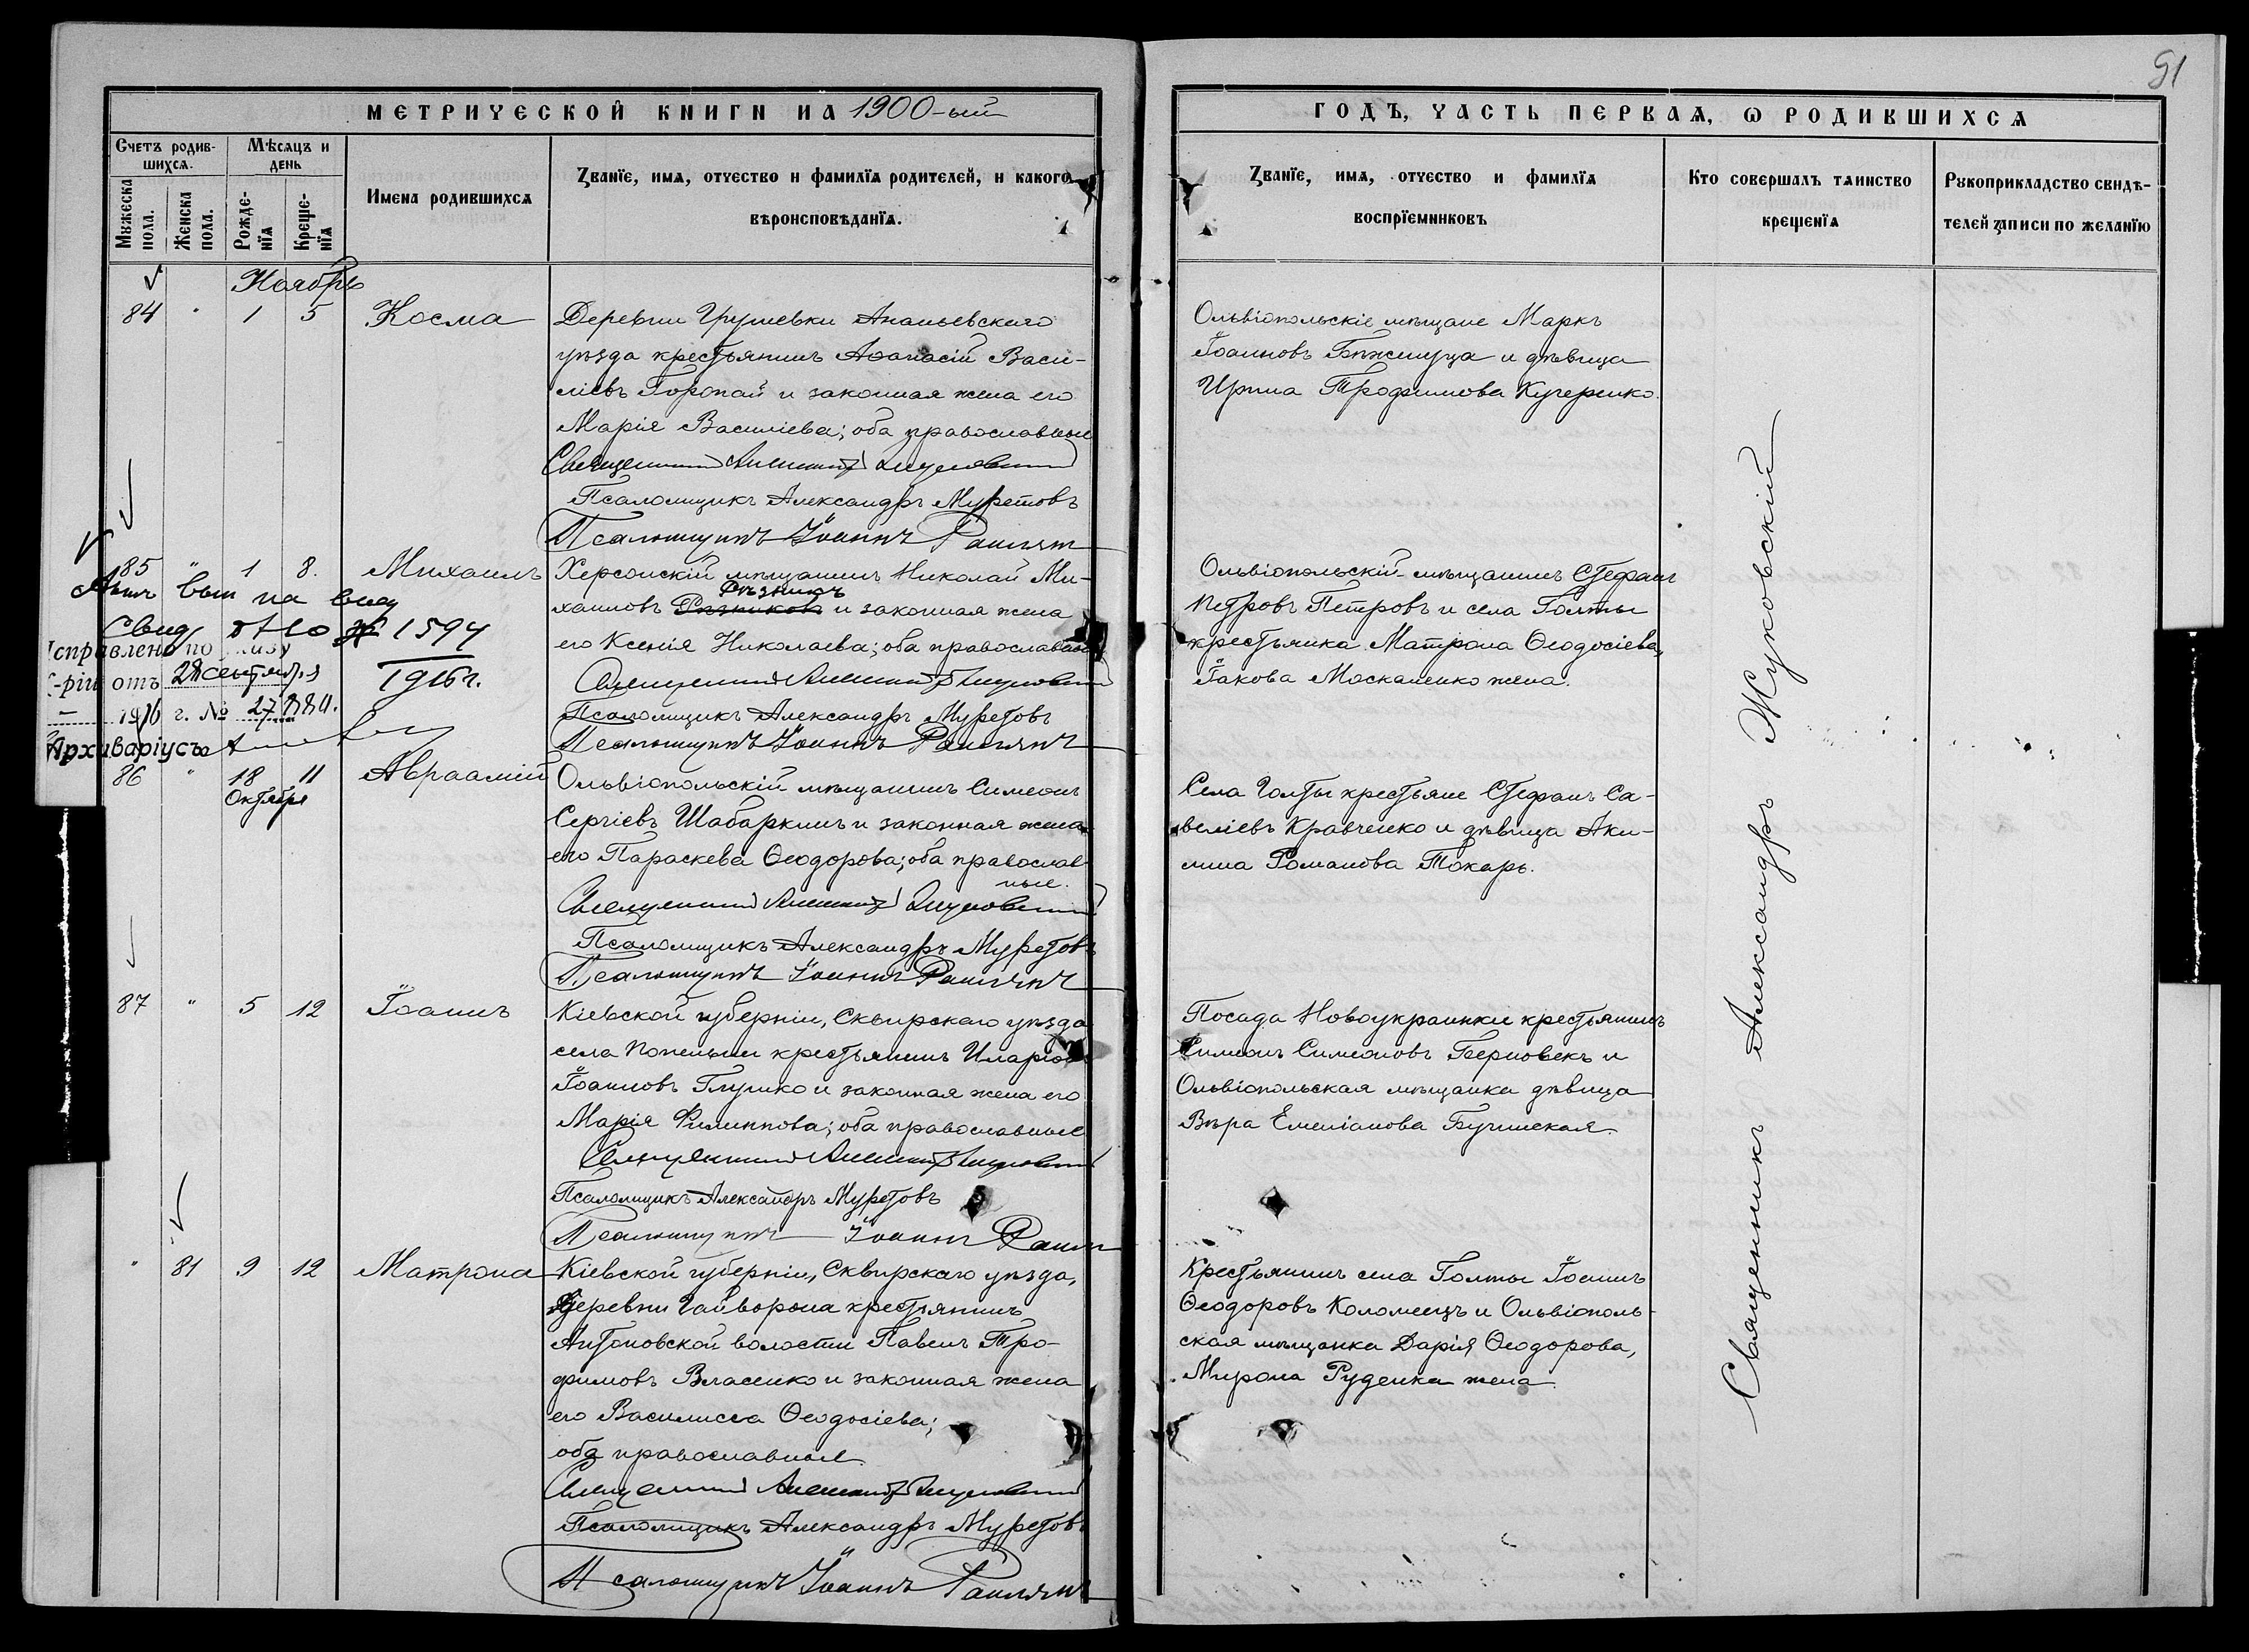 91
МЕТРИЧЕСКОЙ КНИГИ НА 1900-ый
ГОДЪ, ЧАСТЬ ПЕРВАЯ, Ѡ РОДИВШИХСЯ
Счетъ родив-
шихся.
Мѣсяцъ и
день
Мужеска
пола.
Женска
пола.
Рожде-
нїя
Креще-
нїя
Имена родившихся
Званїе, имя, отчество и фамилїя родителей, и какого
вѣроисповѣданїя.
Званїе, имя, отчество и фамилїя
воспрїемниковъ
Кто совершалъ таинство
крещенїя
Рукоприкладство свидѣ-
телей записи по желанїю
Ноябрь
84 " 1 5 Косма
Деревни Грушевки Ананьевскаго
уѣзда крестьянинъ Аѳанасій Васи-
ліевъ Горопай и законная жена его
Марія Василіева; оба православные
Священникъ Александръ Жуковскій
Псаломщикъ Александръ Муретовъ
Псаломщикъ Іоаннъ
Ольвіопольскіе мѣщане Маркъ
Іоанновъ Бѣжмуца и дѣвица
Ирина Трофимова Кучеренко.
85 " 1 8. Михаилъ
Херсонскій мѣщанинъ Николай Ми-
Рѣзникъ
хаиловъ Рѣзниковъ и законная жена
его Ксенія Николаева; оба православные
Священникъ Александръ Жуковскій
Псаломщикъ Александръ Муретовъ
Псаломщикъ Іоаннъ
вып на
Свид № 1594
1916 г.
Исправлено по указу
отъ 28 сентября
1916 г. № 27884.
Архиваріусъ
Ольвіопольскій мѣщанинъ Стефанъ
Петровъ Петровъ и села Голты
крестьянка Матрона Ѳеодосіева,
Іакова Москаленко жена.
86 " 18 11 Авраамій
Октября
Ольвіопольскій мѣщанинъ Симеонъ
Сергіевъ Шабаркинъ и законная жена
его Параскева Ѳеодорова; оба православ-
ные.
Священникъ Александръ Жуковскій
Псаломщикъ Александръ Муретовъ
Псаломщикъ Іоаннъ
Села Голты крестьяне Стефанъ Са-
веліевъ Кравченко и дѣвица Аки-
лина Романова Токарь.
87 " 5 12 Іоаннъ
Кіевской губерніи, Сквирскаго уѣзда
села Попельни крестьянинъ Иларіонъ
Іоанновъ Глушко и законная жена его
Марія Филиппова; оба православные
Священникъ Александръ Жуковскій
Псаломщикъ Александръ Муретовъ
Псаломщикъ Іоаннъ
Посада Новоукраинки крестьянинъ
Симеонъ Симеоновъ Берновекъ и
Ольвіопольская мѣщанка дѣвица
Вѣра Емеліанова Бучинская.
" 81 9 12 Матрона
Кіевской губерніи, Сквирскаго уѣзда,
Деревни Гайворона крестьянинъ
Антоновской волости Павелъ Тро-
фимовъ Власенко и законная жена
его Василисса Ѳеодосіева;
оба православные.
Священникъ Александръ Жуковскій
Псаломщикъ Александръ Муретовъ
Псаломщикъ Іоаннъ
Крестьянинъ села Голты Іоаннъ
Ѳеодоровъ Коломеецъ и Ольвіополь-
ская мѣщанка Дарія Ѳеодорова,
Мирона Руденка жена
Священникъ Александръ Жуковскій